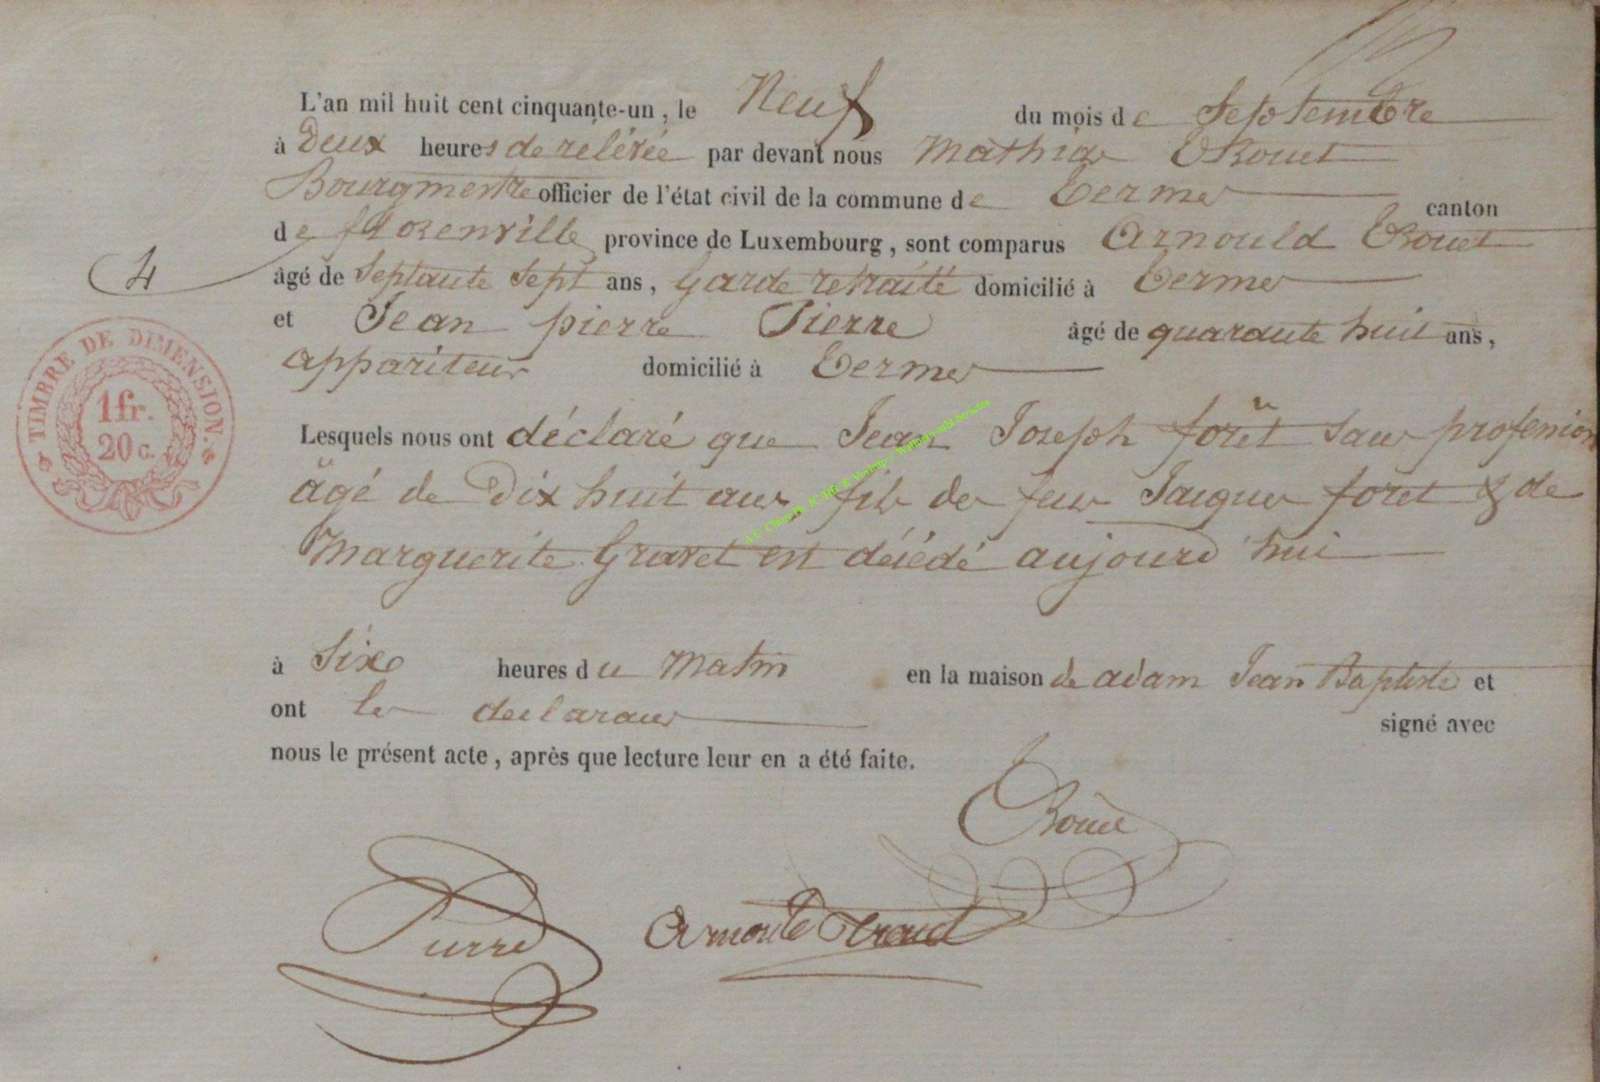 L'an mil huit cent cinquante-un, le Neuf du mois de Septembre
à Deux heures de rélévée par devant nous Mathias Rouet
Bourgmestre officier de l'état civil de la commune de Termes canton
de florenville province de Luxembourg, sont comparus Arnould Rouet
4
âgé de Septante Sept ans, Garde retraité domicilié à Termes
et Jean pierre Pierre âgé de quarante huit ans,
appariteur domicilié à Termes
TIMBRE DE DIMENSION.
1 fr.
20 c.
Lesquels nous ont déclaré que Jean Joseph forêt sans profession
âgé de Dix huit ans fils de feu Jacques foret & de
Marguerite Gravet est décédé aujourd'hui
à Six heures du Matin en la maison de adam Jean Baptiste et
ont les declarans signé avec
nous le présent acte, après que lecture leur en a été faite.
Pierre